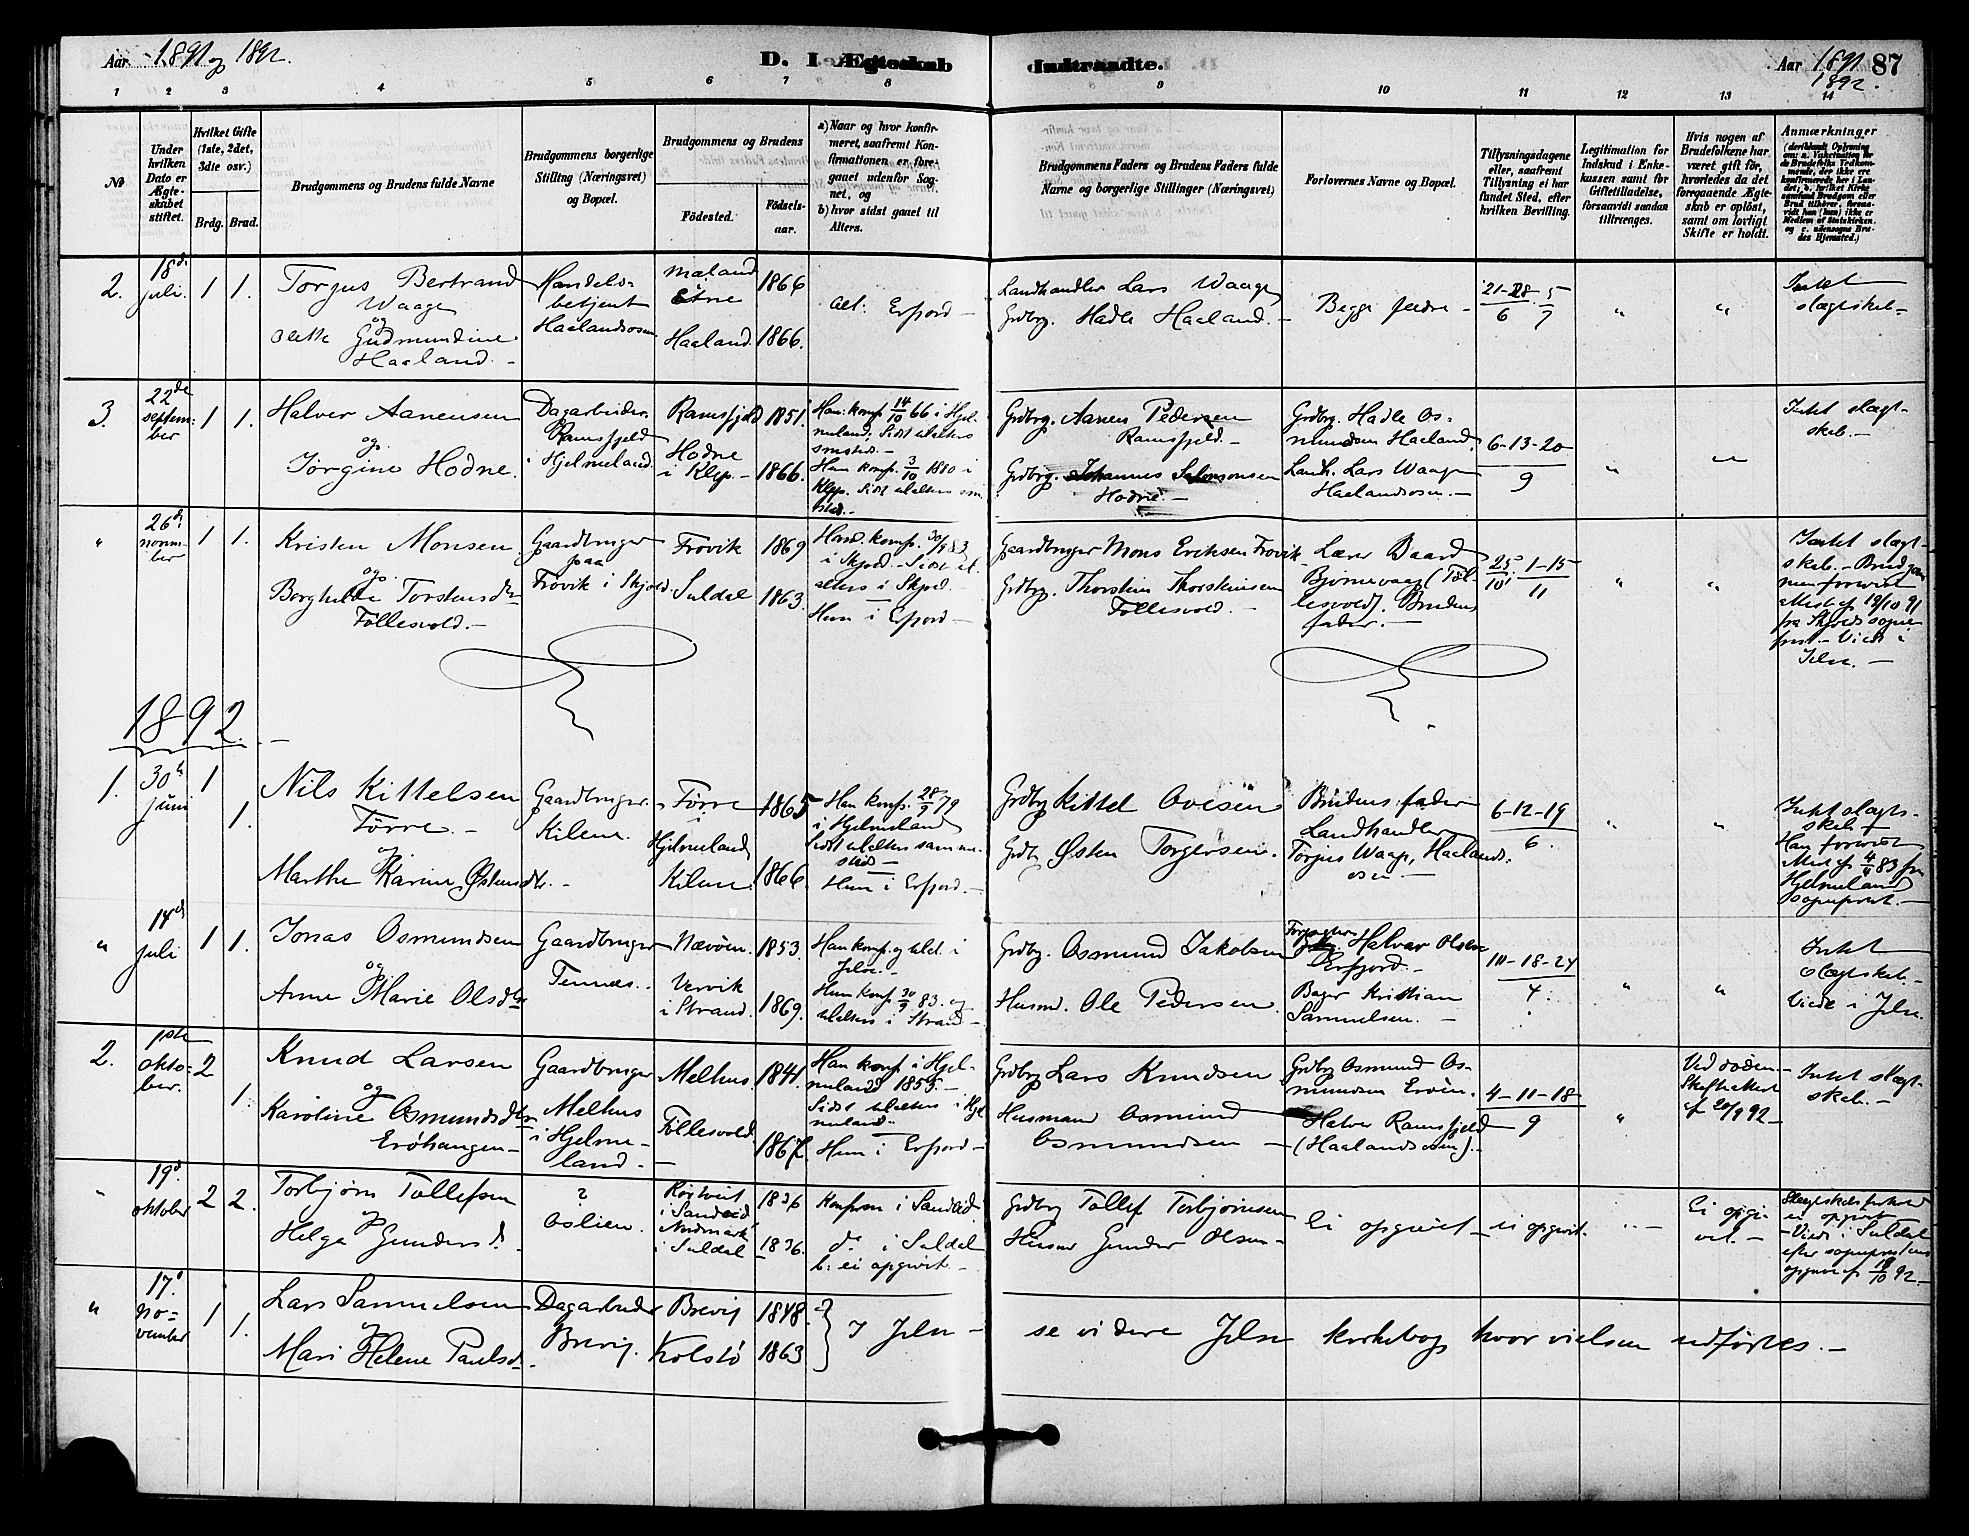 Aar. 1891 og 1892.
D. I Ægteskab Indtraadte.
Aar 1891 1892. 87
1 2 3 4 5 6 7 8 9 10 11 12 13 14
№
Under hvilken Dato er Ægteskabet stiftet.
Hvilket Gifte (1ste, 2det, 3die osv.)
Brdg. Brud.
Brudgommens og Brudens fulde Navne
Brudgommens borgerlige Stilling (Næringsvei) og Bopæl.
Brudgommens og Brudens
Födested.
Födsels-aar.
a) Naar og hvor konfirmeret, saafremt Konfirmationen er foregaaet udenfor Sognet, og
b) hvor sidst gaaet til Alters.
Brudgommens Faders og Brudens Faders fulde Navne og borgerlige Stillinger (Næringsvei)
Forlovernes Navne og Bopæl.
Tillysningsdagene eller, saafremt Tillysning ei har fundet Sted, efter hvilken Bevilling.
Legitimation for Indskud i Enkekassen samt for Giftetilladelse, forsaavidt saadan tiltrænges.
Hvis nogen af Brudefolkene har været gift før, hvorledes da det foregaaende Ægteskab er oplöst, samt om lovligt Skifte er holdt.
Anmærkninger
2. 18de juli. 1 1.
Torjus Bertrand Waage
og
Gudmundine Haaland. -
Handelsbetjent Haalandsosen
Mæland Etne 1866
Haaland. 1866.
alt. Erfjord -
Landhandler Lars Waage
Grdbrg. Hadle Haaland. -
Begge fædre -
21-28/6 5/7
"
"
Intet slægtskab -
3. 22de september 1 1.
Halver Aanensen
og
Jørgine Hodne.
Dagarbeider. Ramsfjeld i Hjelmeland.
Ramsfjeld 1851.
Hodne i Klep. - 1866.
Han: konf. 14/10 66 i Hjelmeland. Sidst til alters smsteds. -
Hun konf. 3/10 1880 i Klep. Sidst til alters smsteds. -
Grdbrg. Aanen Pedersen Ramsfjeld. -
Grdbrg. Johannes Salomonsen Hodne. -
Grdbrg. Hadle Osmundsen Haaland.
Landh. Lars Waage Haalandsosen. -
6-13-20
9
"
"
Intet slægtskab. -
" 26de november 1 1.
Kristen Monsen
og
Berghilde Torsteinsdtr Föllesvold. -
Gaardbruger paa Frövik i Skjold.
Frövik 1869
Suldal 1863.
Han konf. 30/9 83 i Skjold. - Sidst til alters i Skjold. -
Hun i Erfjord -
Gaardbruger Mons Eriksen Frövik
Grdbrg. Thorstein Thorsteinsen Föllesvold. -
Lærer Baard Bjørnevaag (Föllesvold). Brudens fader. -
25/10. 1-15/11
"
"
Intet slægtskab. - Brudgommen forevist attest af 12/10 91 fra Skjolds sogneprest. - Viede i Jelse. -
1892. -
1. 30te juni 1 1.
Nils Kittelsen Förre. -
og
Marthe Karine Östensdtr. -
Gaardbruger. Kilene.
Förre Hjelmeland 1865
Kilene. 1866.
Han konf. 28/9 79 i Hjelmeland Sidst til alters sammesteds -
Hun i Erfjord. -
Grdbrg Kittel Ovesen
Grdb. Östen Torgersen.
Brudens fader
Landhandler Torjus Waage, Haalandsosen. -
6-12-19
6.
"
"
Intet slægtskab. -
Han forevist Attest af 4/4 83 fra Hjelmeland sogneprest. -
" 14de juli 1 1.
Jonas Osmundsen
og
Anne Marie Olsdtr
Gaardbruger Tennes.
Nævöen. 1853.
Vervik i Strand. 1869.
Han konf. og til al. i Jelse. -
Hun konf. 30/9 83. og til alters i Strand -
Grdbrg. Osmund Jakobsen
Husmd. Ole Pedersen.
Halvar Olsen Erfjord. -
Bager Kristian Samuelsen. -
10-18-24
4.
"
"
Intet slægtskab.
Viede i Jelse.
2. 1ste oktober. 2 1.
Knud Larsen
og
Karoline Osmundsdtr Eröhaugen -
Gaardbruger Melhus i Hjelmeland. -
Melhus. 1841.
Föllesvold. 1867.
Han konf. i Hjelmeland 1855. - Sidst til alters i Hjelmeland. -
Hun i Erfjord -
Grdbrg Lars Knudsen
Husmand Osmund Osmundsen -
Grdbrg Osmund Osmundsen Eröen.
Halver Ramsfjeld (Haalandsosen). -
4-11-18
9
"
Ved döden - Skifteattest af 20/9 92 -
Intet slægtskab. -
" 19de oktober 2 2.
Torbjørn Tollefsen
og
Helga Gundersd.
? Oslien.
Røstveit i Sandeid 1836
i Suldal 1836.
Konfirm i Sandeid
do i Suldal
b: ei opgivet. -
Grdbrg Tollef Torbjørnsen
Husmd Gunder Olsen -
Ei opgivet -
ei opgivet.
" -
Ei opgivet. -
Slægtskabsforhold ei opgivet - Viede i Suldal efter sogneprestens opgave af 19/10 92 -
" 17de november 1 1.
Lars Samuelsen
og
Mari Helene Paulsd.
Dagarbeider Brevig.
Brevig 1848.
Kolstö 1863
I Jelse -
se videre Jelse kirkebog hvor vielsen udførtes. -